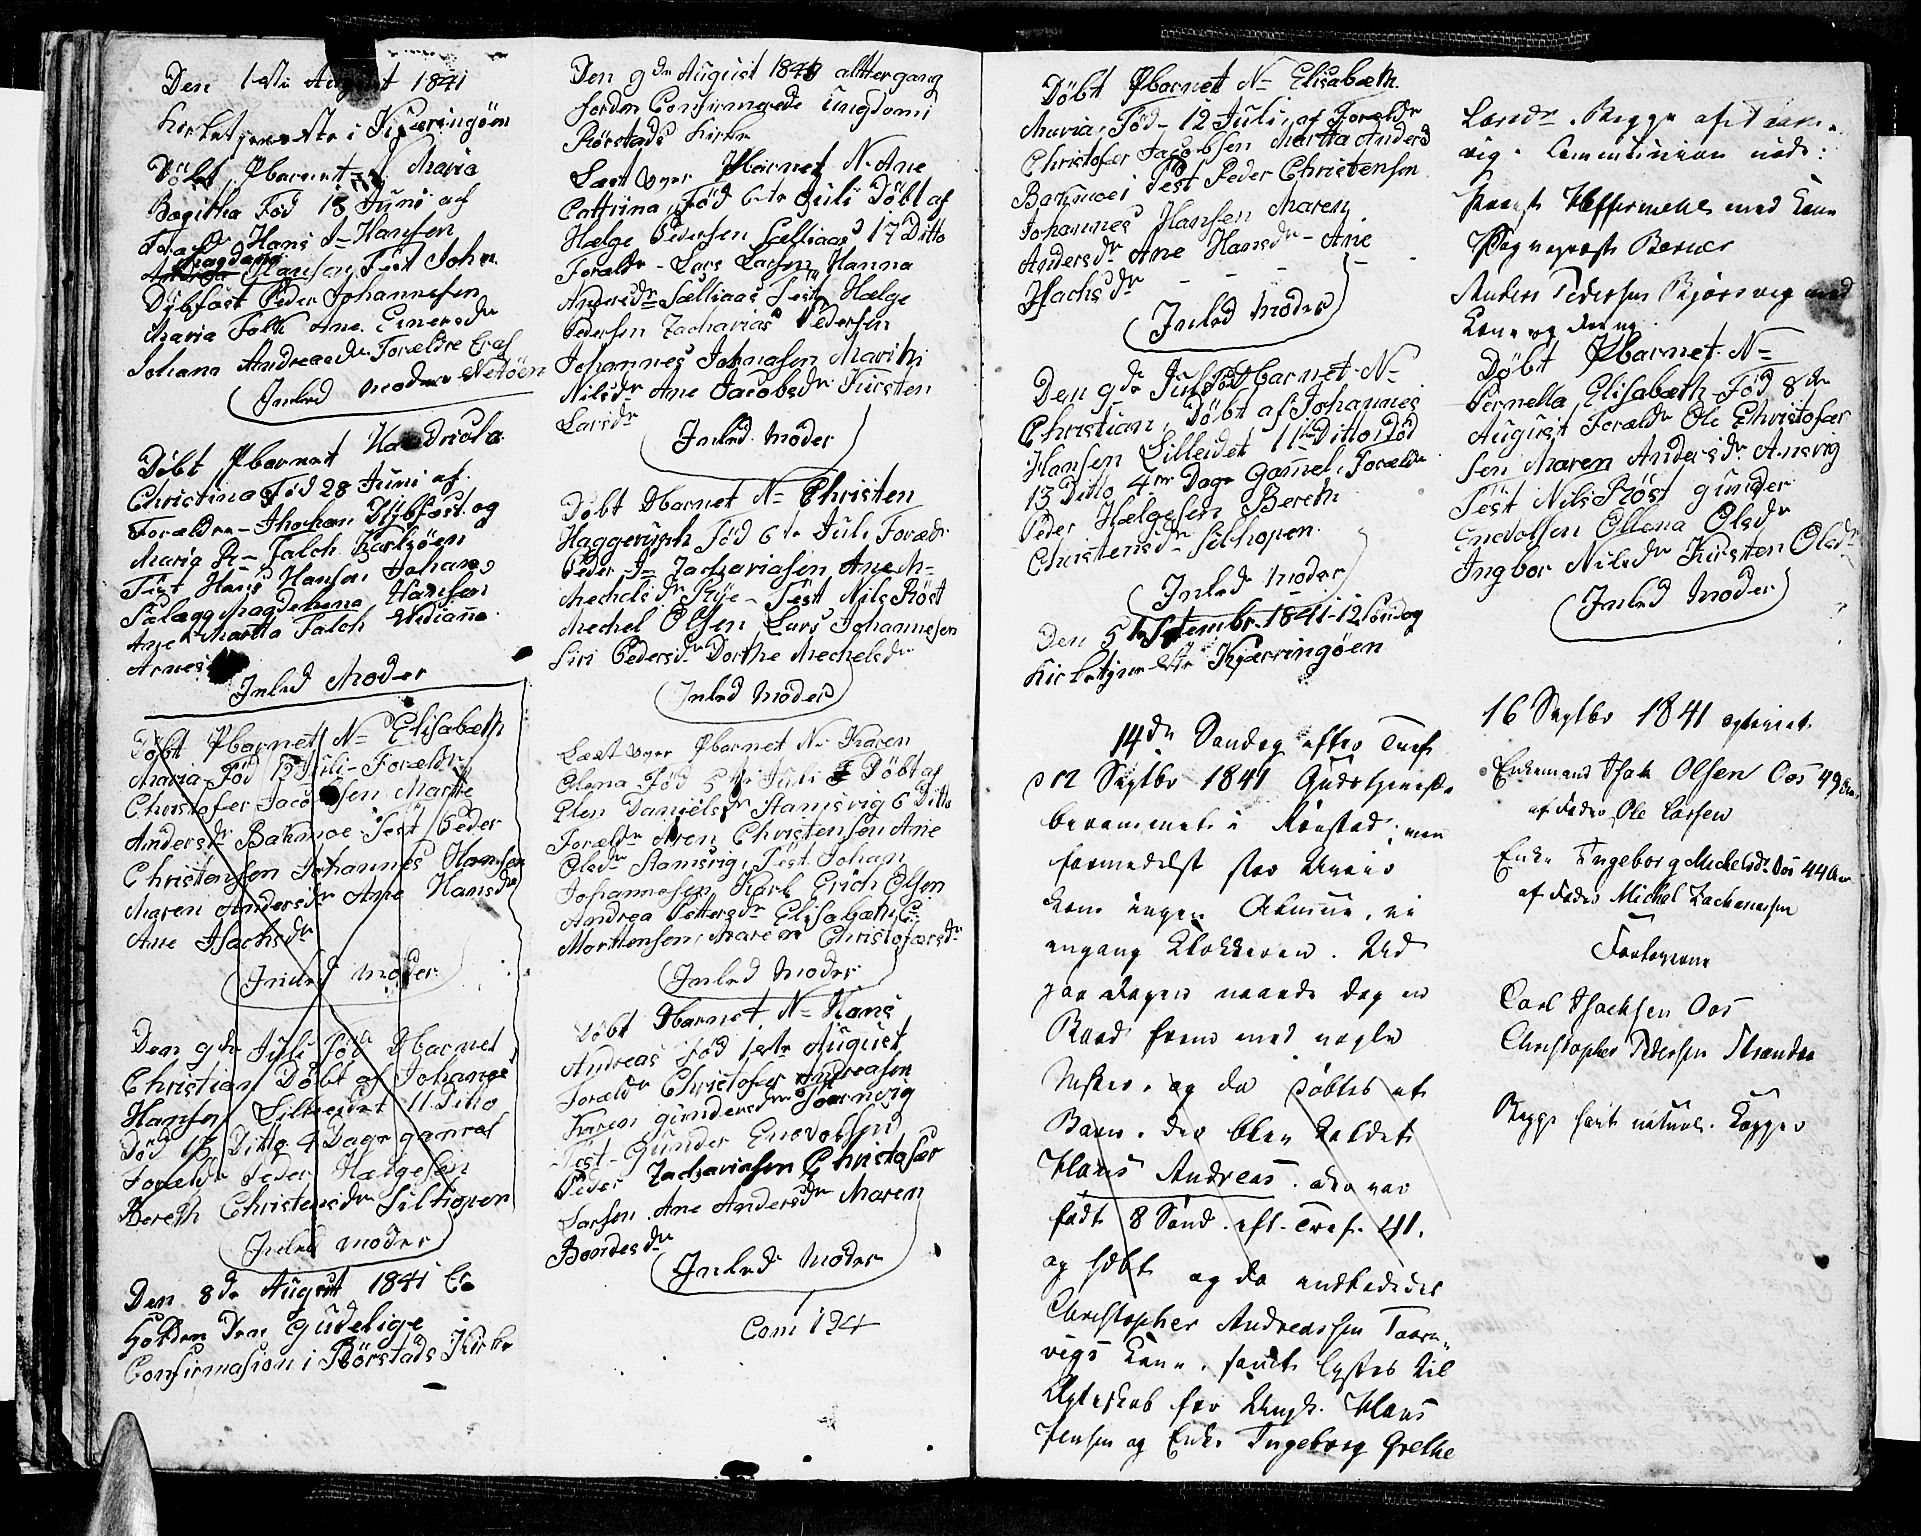 Den 1ste August 1841
Kirketjeneste i Kjæringöen
Döbt Pbarnet N= Maria
Bagitha Föd 18 Juni af
Forældr Hans J= Hansen
Magdana Hansen Test John
Dybfäst Peder Johannesen
Maria Falk Ane Einersdr
Johana Andreasdr Forældre Eraf
Inled Moder
Döbt Pbarnet Handricka
Christina Föd 28 Juni af
Forældre - Jhochan Dybfäst og
Marig R= Falch Karlsöen
Test Hans Hansen Johanes
Sälægg Magdelena Hansen
Ane Martta Falch Widianne
Arnes
Inled Moder
Döbt Pbarnet N= Elisabæth
Maria Föd 12 Juli - Forældr
Christofer Jacobsen Martte
Andersdr Bakmoe Test Peder
Christensen Johannes Hansen
Maren Andersdr Ane Hansdr
Ane Isachsdr
Inled Moder
Den 9de Juli Föd Dbarnet
Christian Döbt af Johanes
Hansen Lilleeidet 11 Ditto
Död 13 Ditto 4 Dage gamel
Forældr Peder Hælgesen
Bereth Christensdr Siltiopen
Inled moder
Den 8de August 1841 Er
Holden Den Gudelige
Confirmasion i Rörstads Kirke
Den 9de August 1841 alttergang
fordn Confirmerede Ungdom i
Rörstads Kirke
Læst over Pbarnet N= Ane
Cattrina Föd 6te Juli Döbt af
Hælge Pedersen Sælliaas 17 Ditto
Forældr - Lars Larsen Hanna
Andersdr Sælliaas Test Hælge
Pedersen Zacharias Pedersen
Johannes Johnasen Marith
Nilsdr Ane Jacobsdr Kirsten
Larsdr
Inled Moder
Döbt Dbarnet N= Christen
Haggerupph Föd 6te Juli Forældr
Peder J= Zachariasen Ane M=
Mechelsdr Rye - Test Nils Röst
Mechel Olsen Lars Johannesen
Siri Pedersdr Dorthe Mechelsdr
Inled Moder
Læst over Pbarnet N= Karen
Olena Föd 5te Juli Döbt af
Elen Danielsdr Stamsvig 6 Ditto
Forældr Aren Christensen Ane
Olsdr Stamsvig, Test Johan
Johannesen, Karl Erich Olsen
Andrea Pettersdr Elisabæth
Morttensen, Maren Christofersdr
Inled Moder
Döbt Dbarnet N= Hans
Andreas Föd 1ste August
Forældr Christofer Andreasen
Karen Gundersdr Taarnvig
Test - Gunder Enevoldsen
Peder Zachariasen Christofær
Larsen Ane Andersdr Maren
Bendesdr
Inled Moder
Com 124
Döbt Pbarnet N= Elisabæth
Maria, Föd - 12 Juli, af Forældr
Christofer Jacobsen Martta Andersd
Bakmoe i Test Peder Christensen
Johannes Hansen Maren
Andersdr Ane Hansdr - Ane
Isachsdr
Inled Moder
Den 9de Juli Dbarnet N=
Christian, Döbt af Johannes
Hansen Lilleidet 11te Ditto, Död
13 Ditto 4re Dage gamel, Forældr
Peder Hælgesen Bereth
Christensdr Silthopen
Inled Moder
Den 5te September 1841 - 12 Söndag
Kirketjeneste Kjærringöen
14de Søndag efter Tref.
d 12 Septbr 1841 Gudstjeneste
berammet i Rørstad; men
formedelst stor Uveir
kom ingen Almue, ei
engang Klokkeren. Ud
paa Dagen naaede dog en
Baad frem med nogle
Msker. og da døbtes et
Barn, der blev kaldet
Hans Andreas. der var
født 8 Sønd. eft. Tref. 41.
og hdbt og da indledede
Christopher Andreassen Taarn-
vigs Kone. samt lystes til
Ægteskab for Ungk. Hans
Jensen og Enke Ingeborg Grethe
Larsdr. Begge af Taarn-
vig. Communion nød:
Provst Heffermehl med Kone
Sognepræst Berner
Anders Pedersen Bjørsvig med
Kone og Dreng
Döbt Pbarnet N=
Pernella Elisabæth Föd 8de
August Forældr Ole Christofær
sen Maren Andersdr Ansvig
Test Nils Röst gunder
Enevolsen Ollena Olsdr
Ingbor Nilsdr Kirsten Olsdr
Inled Moder
16 Septbr 1841 copuleret
Enkemand Isak Olsen Oos 49 Aar
af Fader Ole Larsen
Enke Ingeborg Michelsdr. Oos 44 Aar
af Fader Michel Zachariasen
Forloverne
Carl Isachsen Oos
Christopher Pedersen Strandaa
Begge havt naturl. Kopper